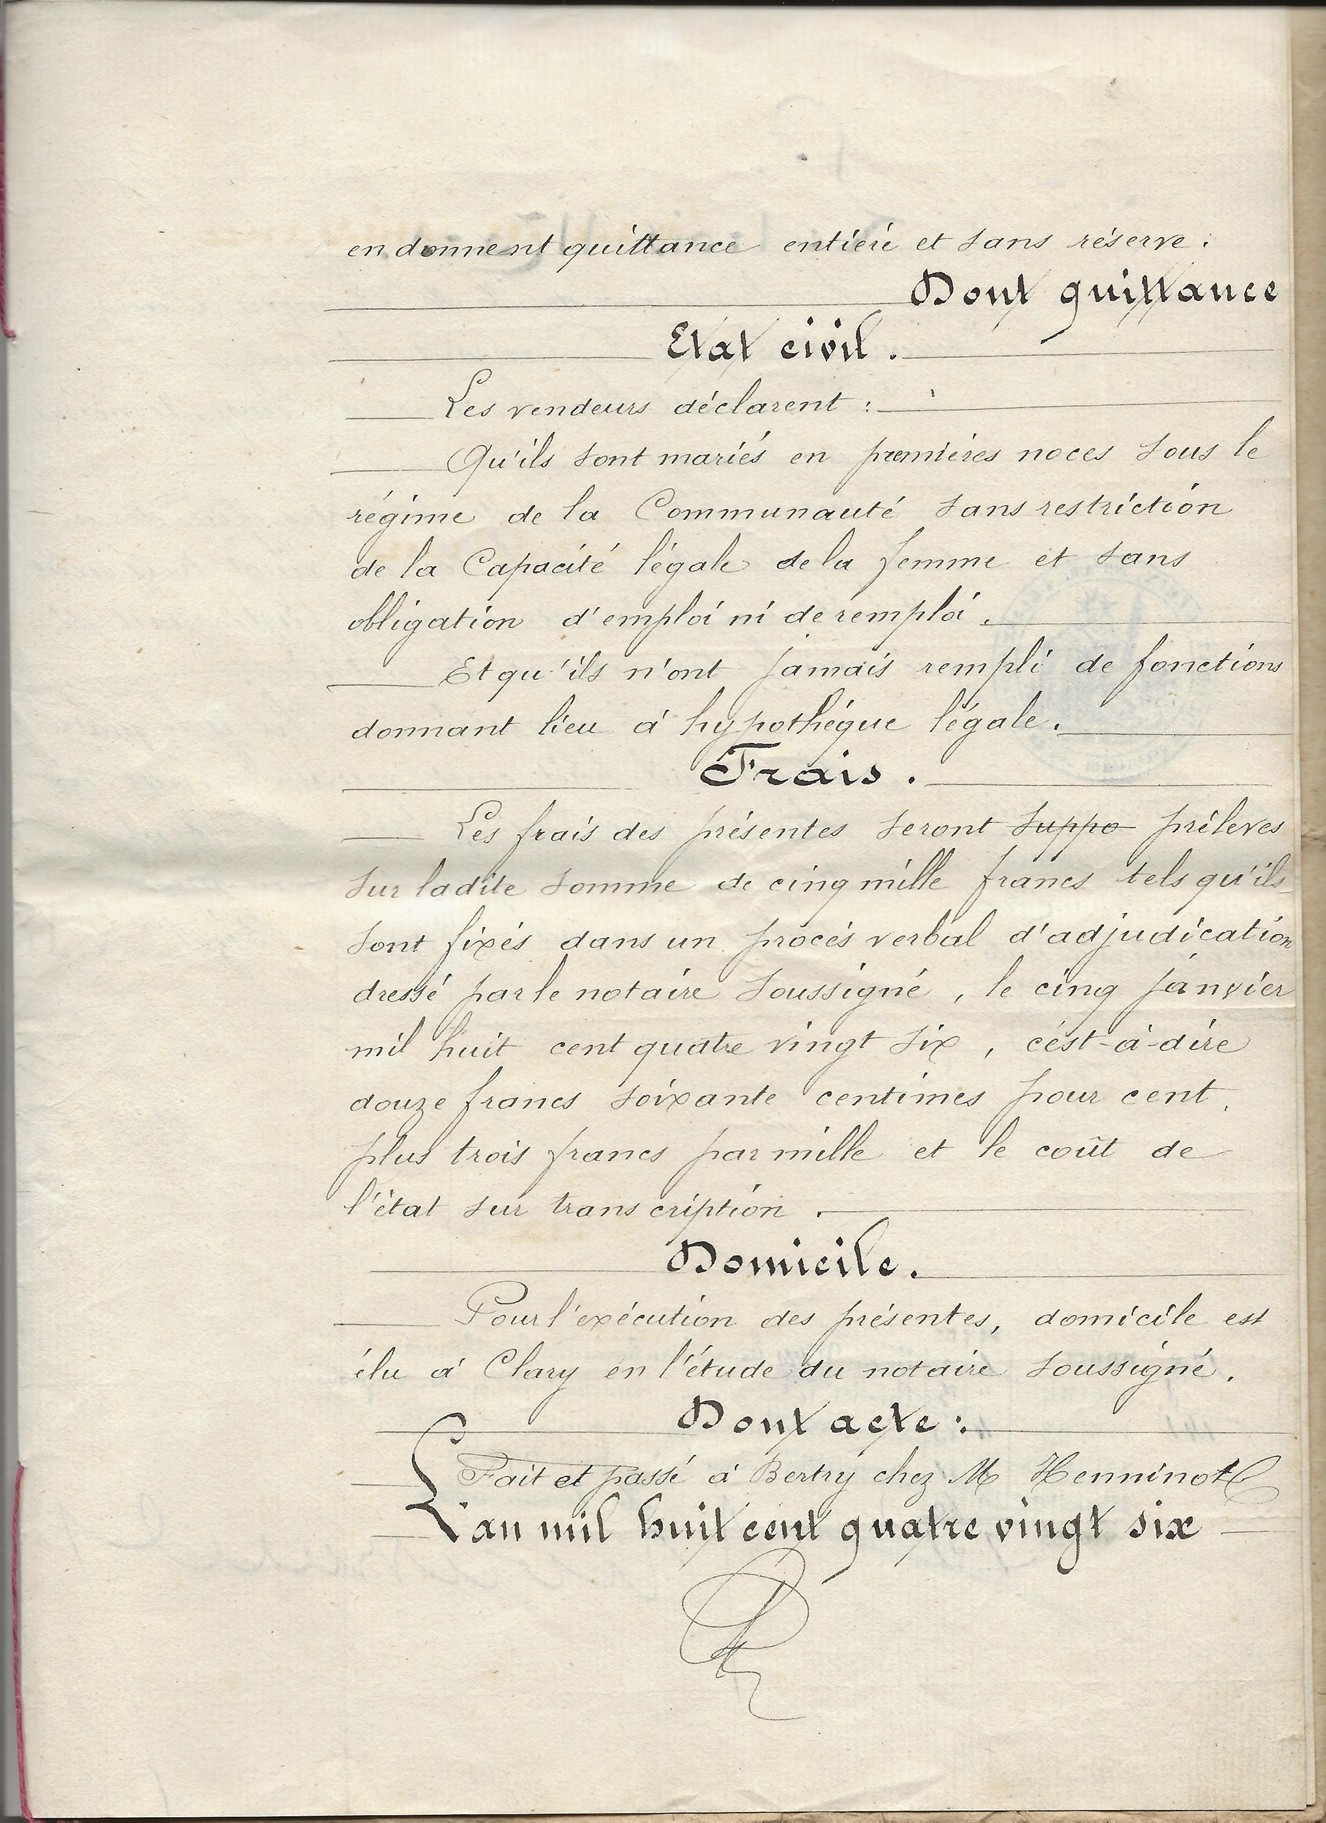 en donnent quittance entiére et sans réserve.
Dont quittance
Etat civil.
Les vendeurs déclarent :
Qu'ils sont mariés en premières noces sous le
régime de la Communauté sans restriction
de la Capacité légale de la femme et sans
obligation d'emploi ni de remploi.
Et qu'ils n'ont jamais rempli de fonctions
donnant lieu à hypothéque légale.
Frais.
Les frais des présentes seront suppo prélevés
sur ladite somme de cinq mille francs tels qu'ils
sont fixés dans un procés verbal d'adjudication
dressé par le notaire soussigné, le cinq janvier
mil huit cent quatre vingt six, c'est-à-dire
douze francs soixante centimes pour cent,
plus trois francs par mille et le coût de
l'état sur transcription.
Domicile.
Pour l'exécution des présentes, domicile est
élu à Clary en l'étude du notaire soussigné.
Dont acte :
Fait et passé à Bertry chez M Henninot
L'an mil huit cent quatre vingt six